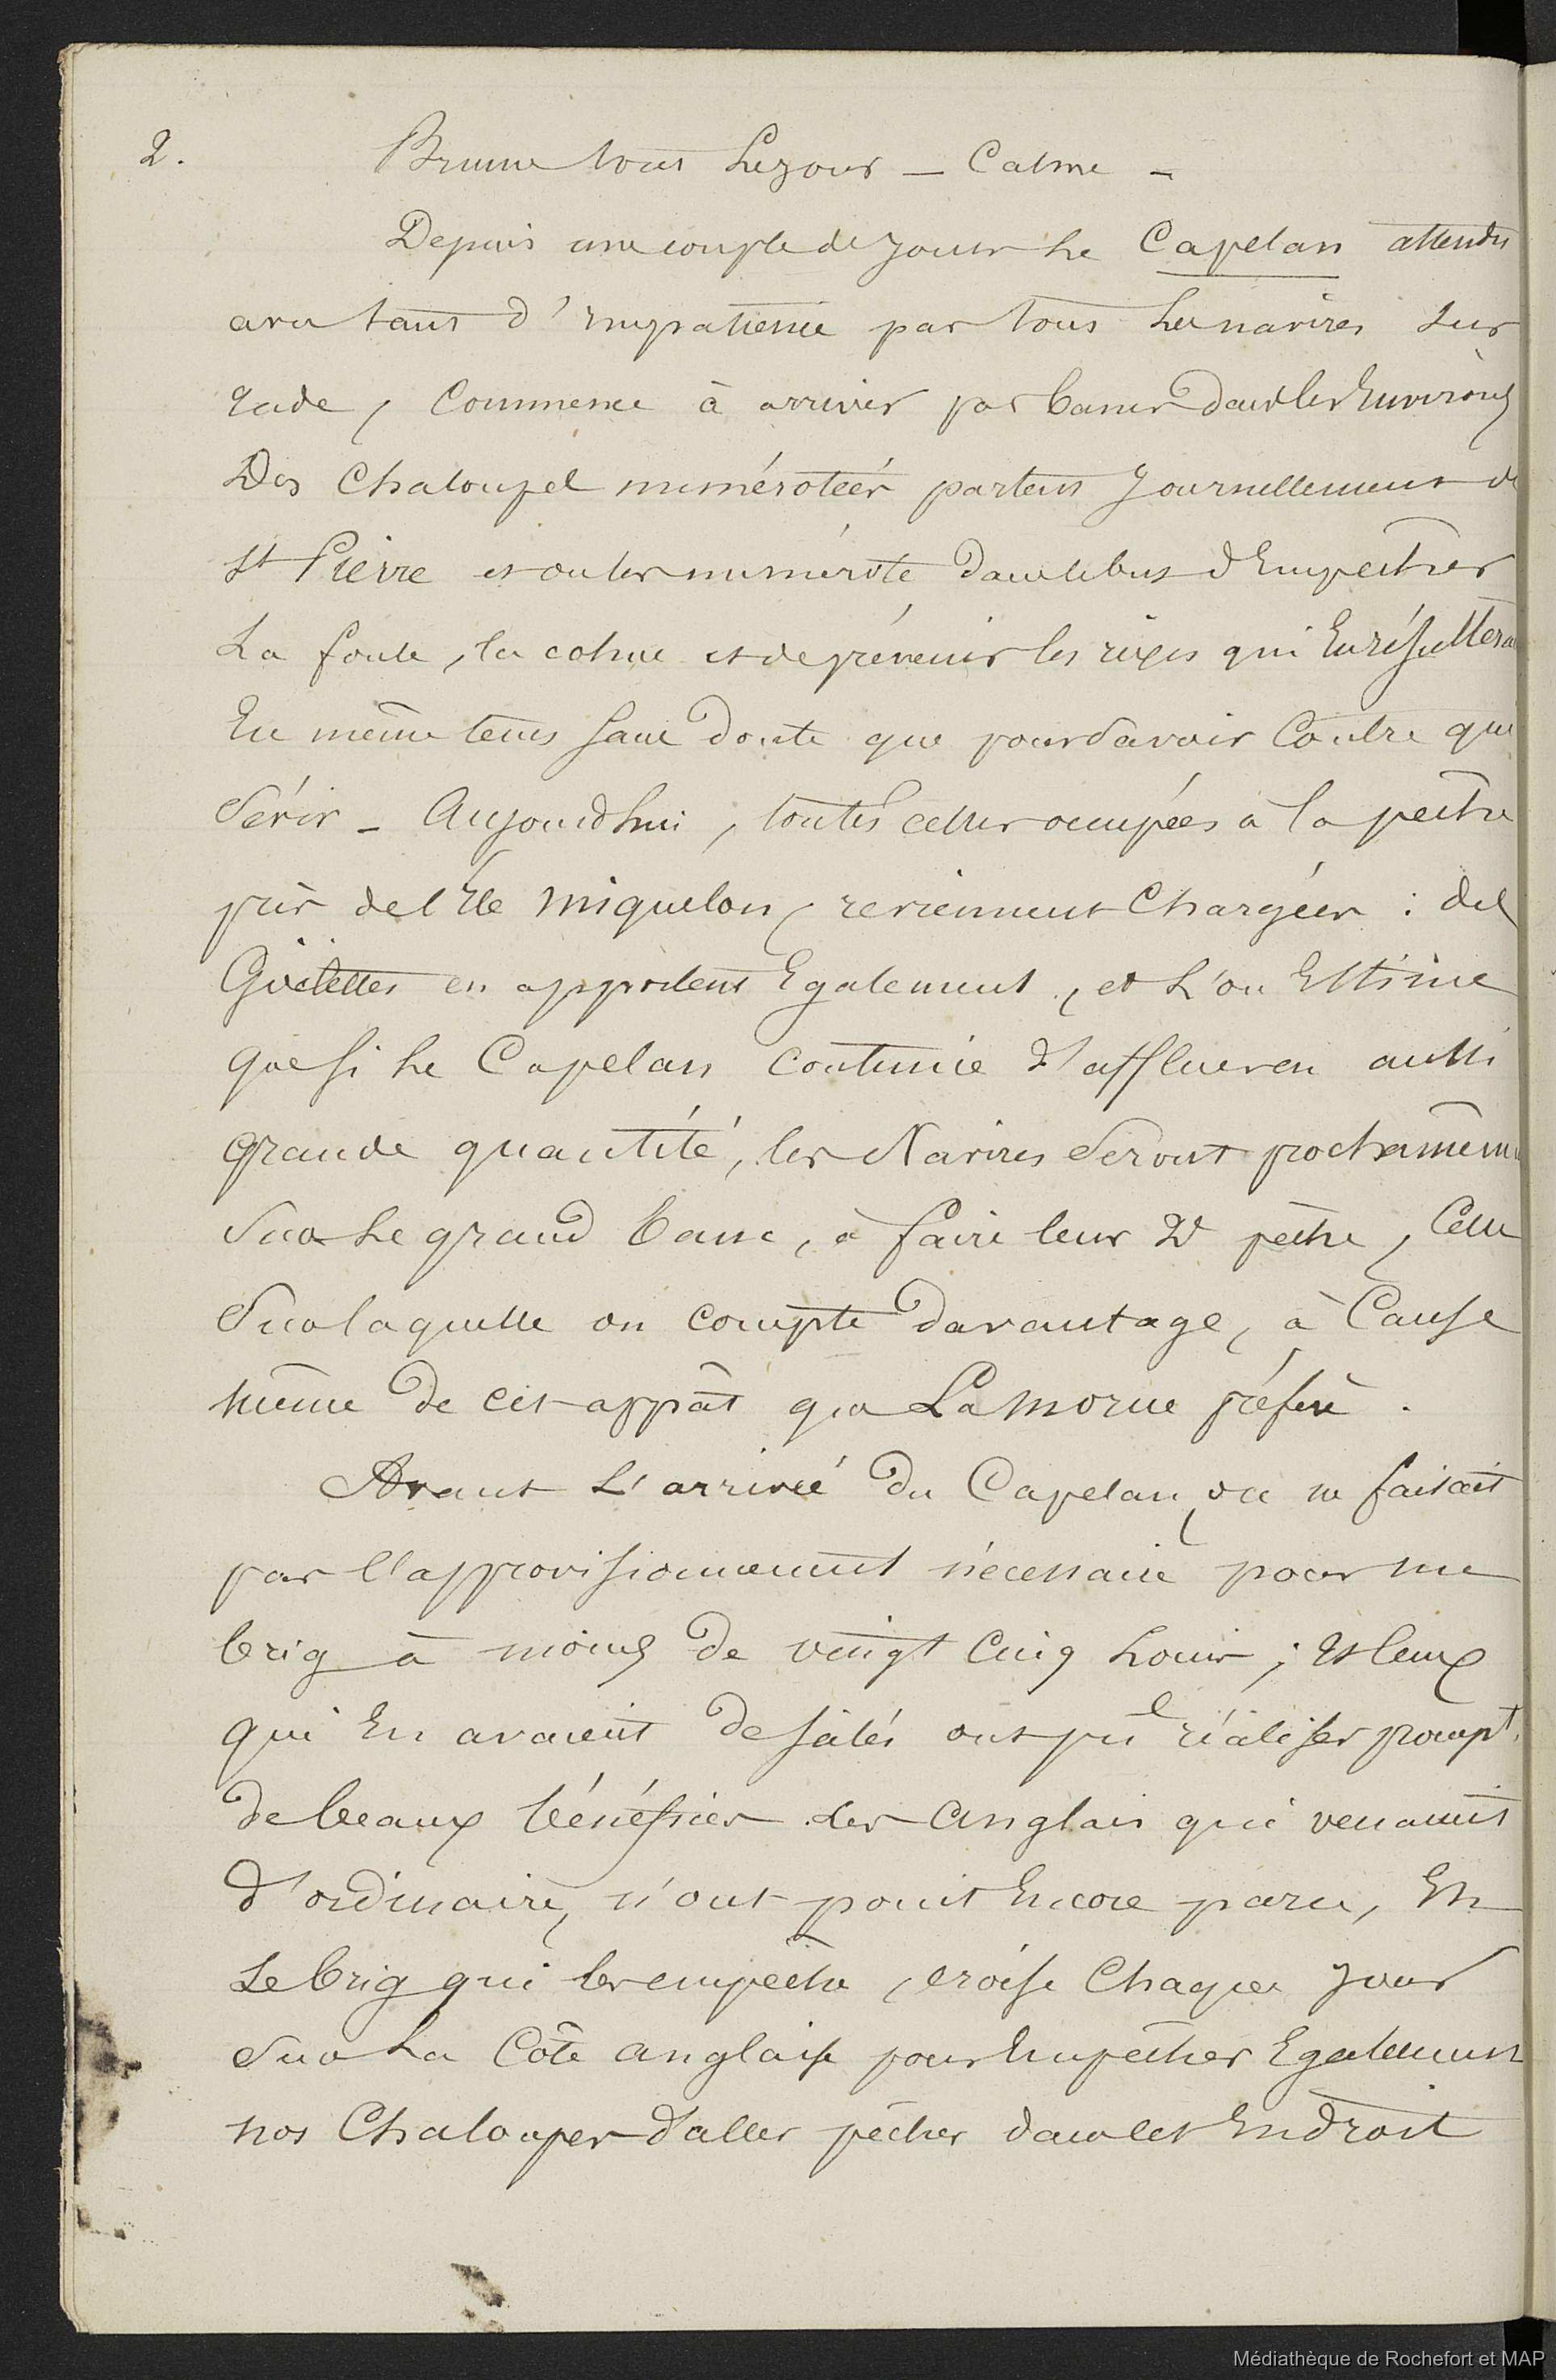 2. Brume tout Lejour - Calme -
Depuis une couple de jours Le Capelan attendu
avec tant d'impatience par tous Les navires sur
rade, Commence à arriver par bancs dans les Environs
Des Chaloupes numérotées partent Journellement de
St Pierre et on les numérote dans le but d'Empêcher
La foule, la cohue et de prévenir les rixes qui En résulteraient
En même tems sans doute que pour savoir Contre qui
Sévir - Aujourd'hui, toutes celles occupées à la pêche
près de l'Ile Miquelon, reviennent Chargées : des
Goëlettes en apportent Egalement, et L'on Estime
que si Le Capelan continue d'affluer en aussi
grande quantité, les Navires Seront prochainement
Sur Le grand banc, à faire leur 2e pêche, Celle
Sur laquelle on compte davantage, à Cause
même de cet appât que La Morue préfère.
Avant L'arrivée du Capelan, on ne faisait
pas l'approvisionnement nécessaire pour un
brig à moins de vingt Cinq Louis ; et Ceux
qui En avaient de salés ont pu réaliser prompt.
de beaux bénéfices. Les Anglais qui venaient
d'ordinaire, n'ont point Encore paru, Et
Le brig qui les empêche, croise Chaque jour
Sur La Côte anglaise pour Empêcher Egalement
nos Chaloupes d'aller pêcher dans les Endroit
Médiathèque de Rochefort et MAP